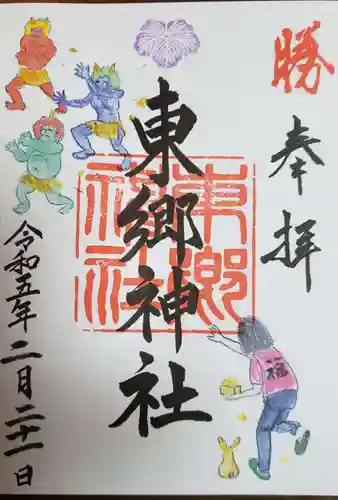 勝
奉拝
東郷神社
東郷神社
令和五年二月二十一日
福